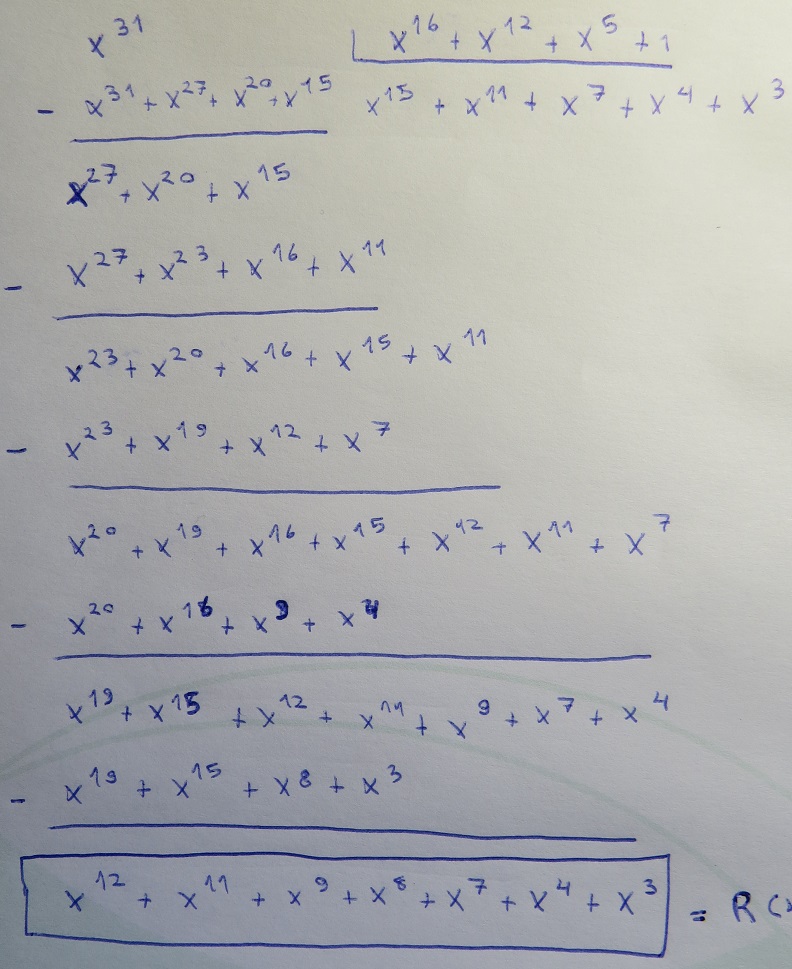 x³¹ x¹⁶ + x¹² + x⁵ + 1
- x³¹ + x²⁷ + x²⁰ + x¹⁵ x¹⁵ + x¹¹ + x⁷ + x⁴ + x³
x²⁷ + x²⁰ + x¹⁵
- x²⁷ + x²³ + x¹⁶ + x¹¹
x²³ + x²⁰ + x¹⁶ + x¹⁵ + x¹¹
- x²³ + x¹⁹ + x¹² + x⁷
x²⁰ + x¹⁹ + x¹⁶ + x¹⁵ + x¹² + x¹¹ + x⁷
- x²⁰ + x¹⁶ + x⁹ + x⁴
x¹⁹ + x¹⁵ + x¹² + x¹¹ + x⁹ + x⁷ + x⁴
- x¹⁹ + x¹⁵ + x⁸ + x³
x¹² + x¹¹ + x⁹ + x⁸ + x⁷ + x⁴ + x³ = R(x